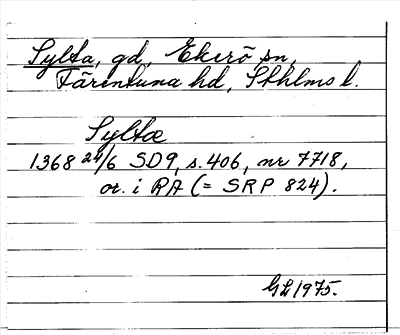 Sylta, gd, Ekerö sn,
Färentuna hd, Sthlms l.
Syltæ
1368 24/6 SD9, s. 406, nr 7718,
or. i RA (= SRP 824).
GL 1975.